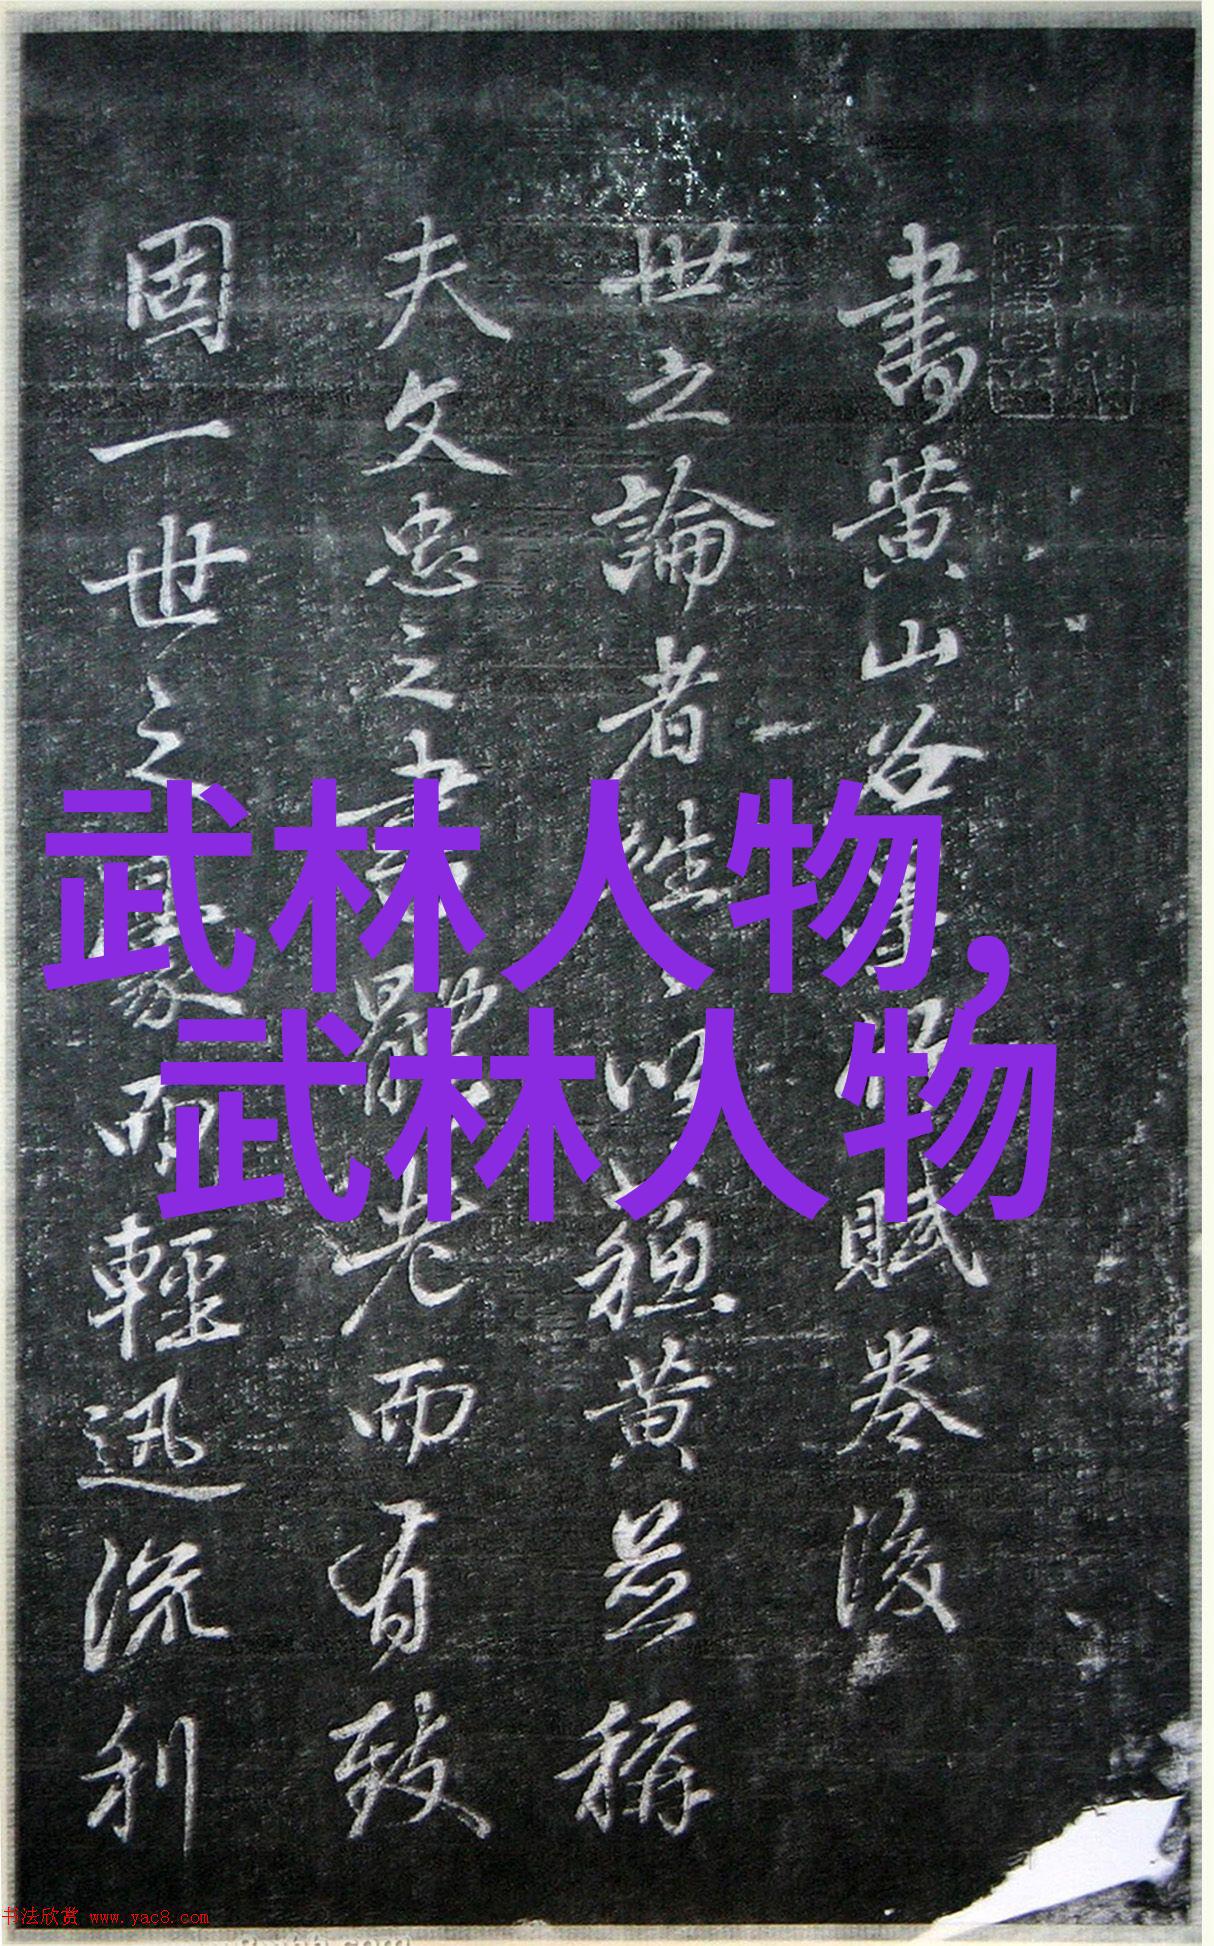 書黄山谷
賦卷後
世之論者
以蘓黄並稱
夫文忠之書
老而有致
固一世之豪而輕迅流利
武林人物,
武林人物
书法欣赏 www.yac8.com